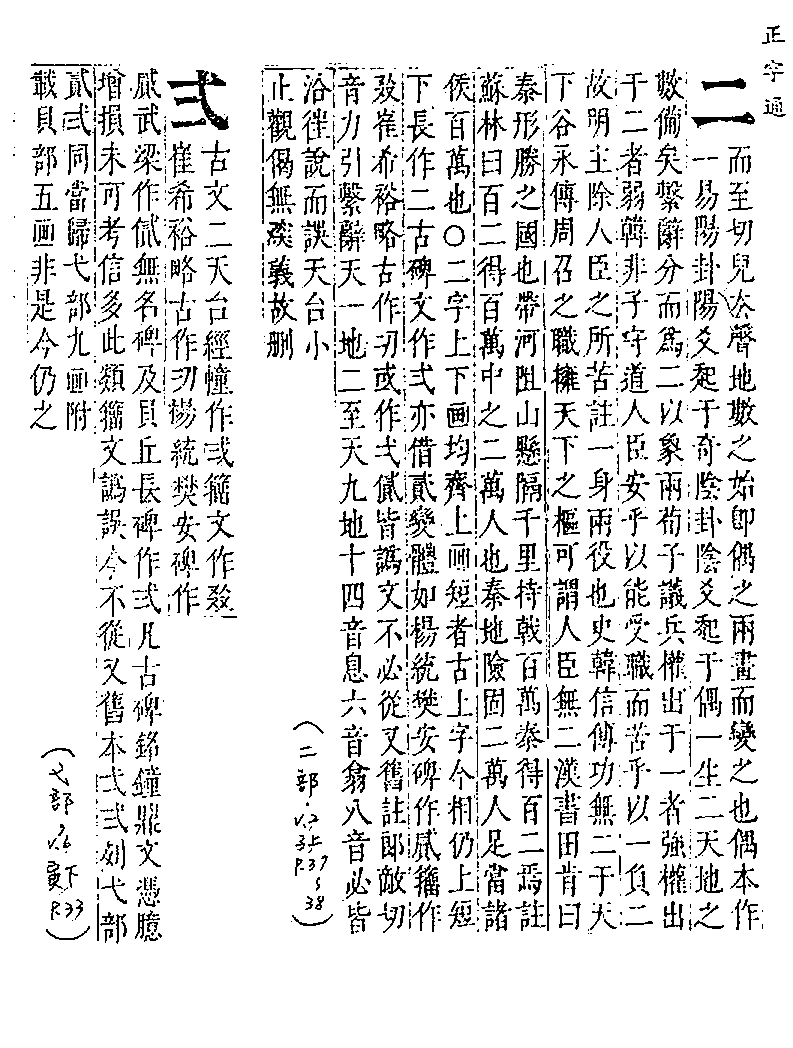 正字通
二 而至切兒去聲地數之始即偶之兩畫而變之也偶本作
一易陽卦陽爻起于奇陰卦陰爻起于偶一生二天地之
數備矣繫辭分而爲二以象兩荀子議兵權出于一者強權出
于二者弱韓非子守道人臣安乎以能受職而苦乎以一負二
故明主除人臣之所苦註一身兩役也史韓信傳功無二于天
下谷永傳周召之職擁天下之樞可謂人臣無二漢書田肯曰
秦形勝之國也帶河阻山懸隔千里持戟百萬秦得百二焉註
蘇林曰百二得百萬中之二萬人也秦地險固二萬人足當諸
侯百萬也〇二字上下画均齊上画短者古上字今相仍上短
下長作二古碑文作弍亦借貳變體如楊統樊安碑作貮籀作
㢤崔希裕略古作刃或作弍貮皆譌文不必從又舊註郎敵切
音力引繫辭天一地二至天九地十四音息六音翕八音必皆
沿徃說而誤天台小
止觀偈無深義故删
(二部, V.2 子上 P.37~38)
弍 古文二天台經幢作或籀文作㢤
崔希裕略古作刃楊統樊安碑作
貮武梁作貮無名碑及貝丘長碑作弍凡古碑銘鐘鼎文憑臆
增損未可考信多此類籀文譌誤今不從又舊本弍弍列弋部
貳弍同當歸弋部九画附
載貝部五画非是今仍之
(弋部, V.6 寅下 P.33)